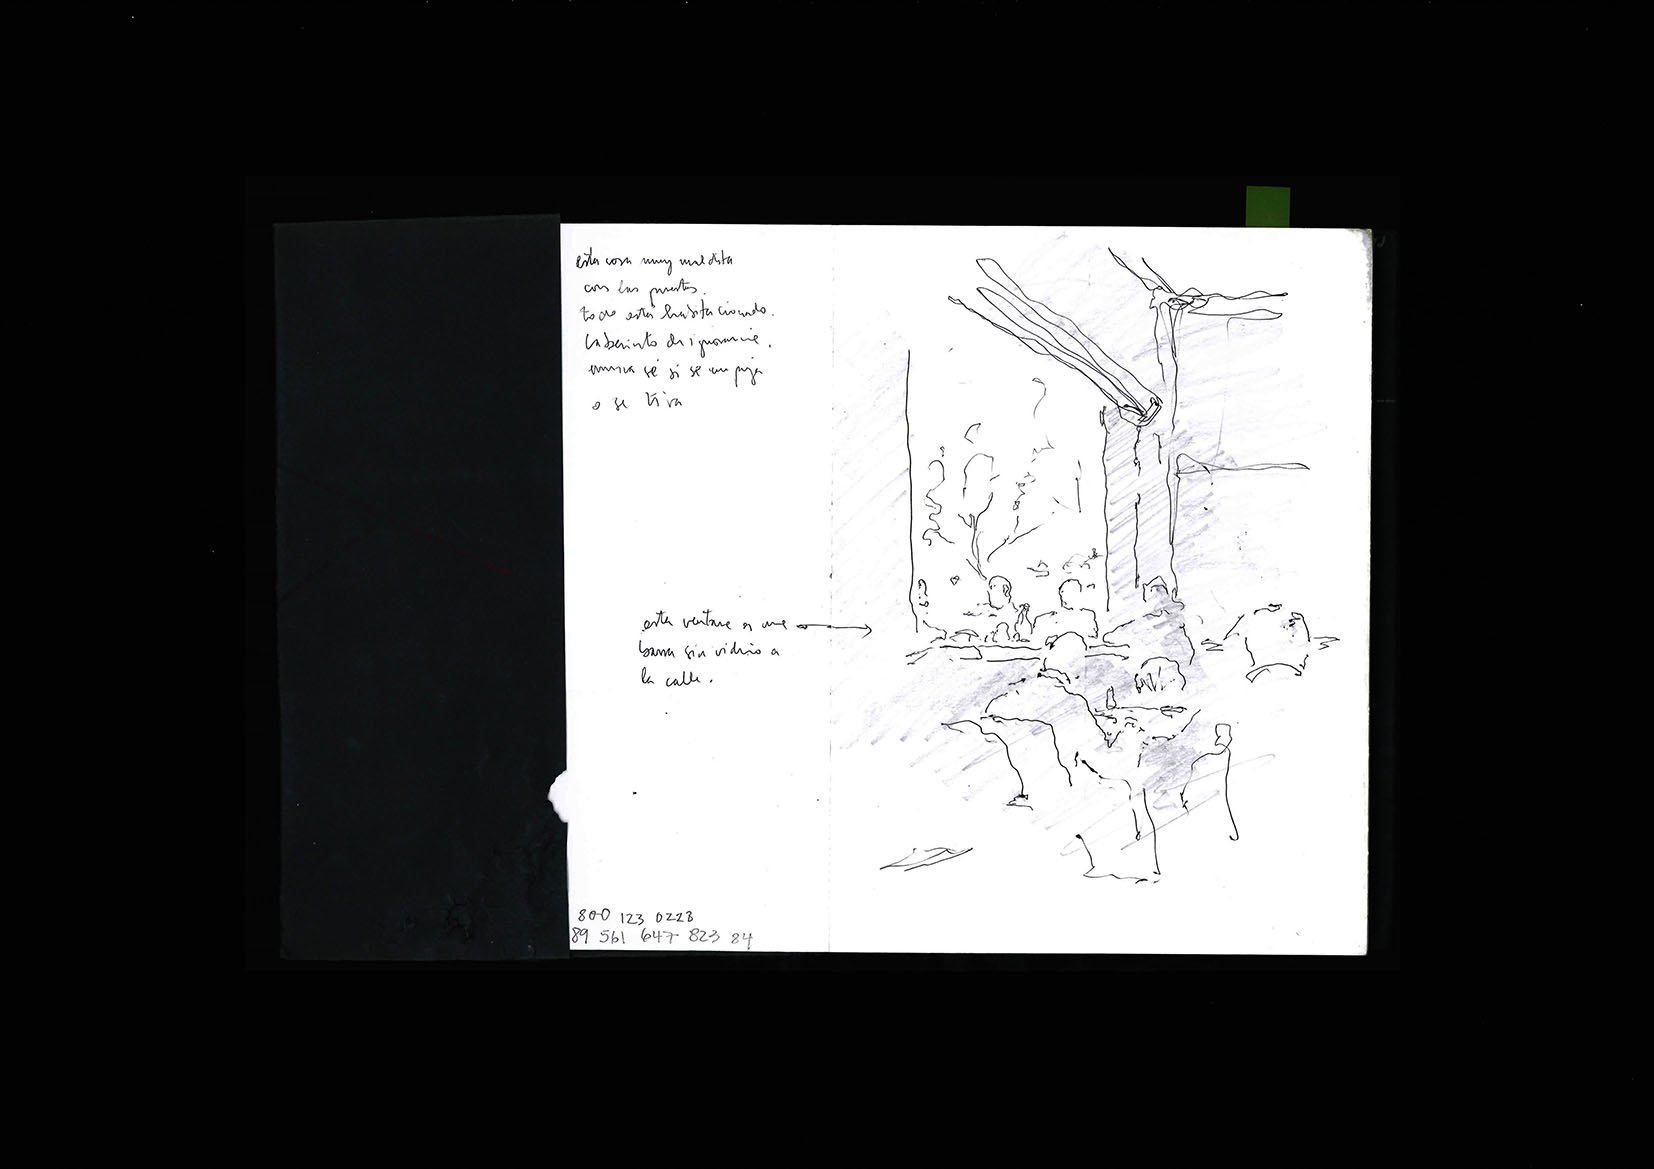 esta cosa muy maldita
con las puertas.
todo está habitacionado.
laberinto de ignorancia.
nunca sé si se empuja
o se tira
esta ventana es una
barra sin vidrio a
la calle.
800 123 0228
89 561 647 823 84